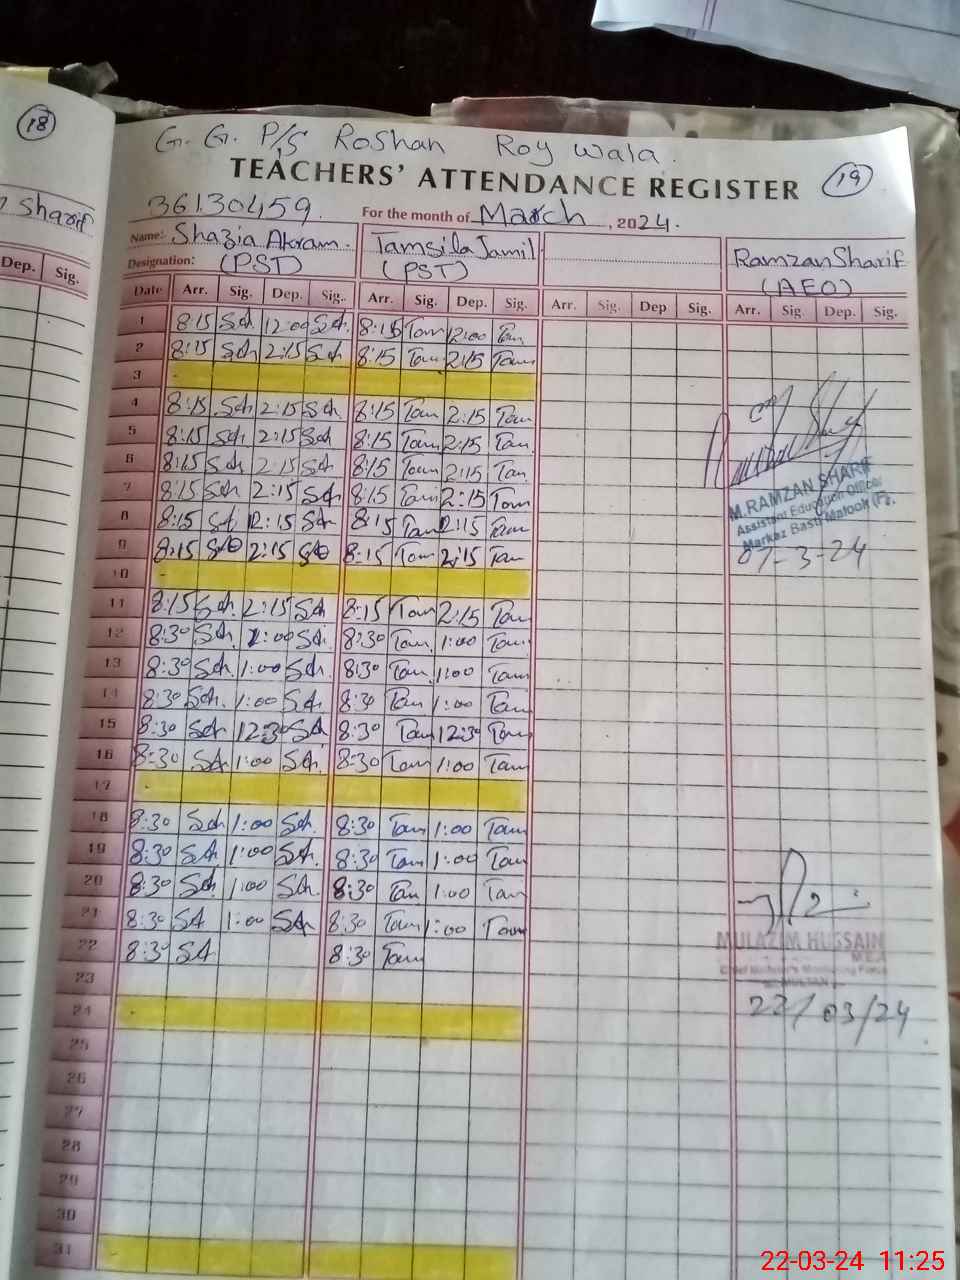 18
G. G. P/S Roshan Roy Wala.
TEACHERS' ATTENDANCE REGISTER 19
36130459. For the month of March, 2024.
Sharif
Name: Shazia Akram. Tamsila Jamil RamzanSharif
Designation: (PST) (PST) (AEO)
Dep. Sig. Date Arr. Sig. Dep. Sig. Arr. Sig. Dep. Sig. Arr. Sig. Dep Sig. Arr. Sig. Dep. Sig.
1 8:15 SA 12:00 SA. 8:15 Tam 12:00 Tam
2 8:15 SA 2:15 SA 8:15 Tam 2:15 Tam
3
4 8:15 SA 2:15 SA. 8:15 Tam 2:15 Tam
5 8:15 SA 2:15 SA 8:15 Tam 2:15 Tam
6 8:15 SA 2:15 SA 8:15 Tam 2:15 Tam
7 8:15 SA 2:15 SA 8:15 Tam 2:15 Tam
8 8:15 SA 2:15 SA 8:15 Tam 2:15 Tam
9 8:15 SA 2:15 SA 8:15 Tam 2:15 Tam
M.RAMZAN SHARIF
Assistant Education Officer
Markaz Basti Malook (F).
07-3-24
10
11 8:15 SA. 2:15 SA 8:15 Tam 2:15 Tam
12 8:30 SA. 1:00 SA. 8:30 Tam 1:00 Tam
13 8:30 SA. 1:00 SA. 8:30 Tam 1:00 Tam
14 8:30 SA. 1:00 SA. 8:30 Tam 1:00 Tam
15 8:30 SA 12:30 SA 8:30 Tam 12:30 Tam
16 8:30 SA 1:00 SA. 8:30 Tam 1:00 Tam
17
18 8:30 SA 1:00 SA. 8:30 Tam 1:00 Tam
19 8:30 SA 1:00 SA. 8:30 Tam 1:00 Tam
20 8:30 SA 1:00 SA. 8:30 Tam 1:00 Tam
21 8:30 SA 1:00 SA 8:30 Tam 1:00 Tam
22 8:30 SA 8:30 Tam
MULAZIM HUSSAIN
M.E.A
Chief Minister's Monitoring Force
22/03/24
23
24
25
26
27
28
29
30
31
22-03-24 11:25